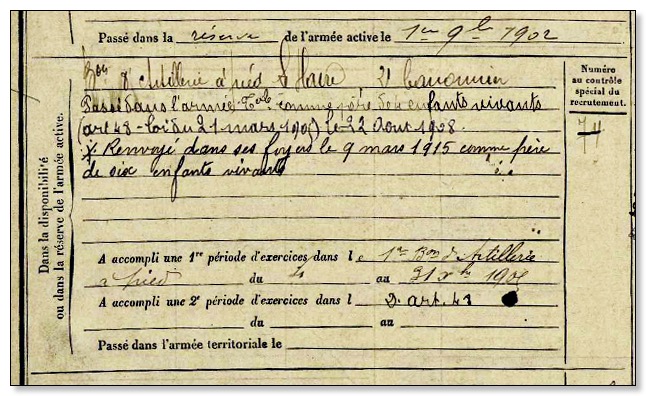 Passé dans la réserve de l'armée active le 1er 9bre 1902
Numéro
au contrôle
spécial du
recrutement.
74
Dans la disponibilité
ou dans la réserve de l'armée active.
Bon d'Artillerie à pied Le Havre 2e Canonnier
Passé dans l'armée Tole comme père de 4 enfants vivants
(art 48 - loi du 21 mars 1905) le 22 Aout 1908.
Renvoyé dans ses foyers le 9 mars 1915 comme père
de six enfants vivants
A accompli une 1re période d'exercices dans le 1er Bon d'Artillerie
à pied du au 31 1905
A accompli une 2e période d'exercices dans l D. art. 48
du au
Passé dans l'armée territoriale le